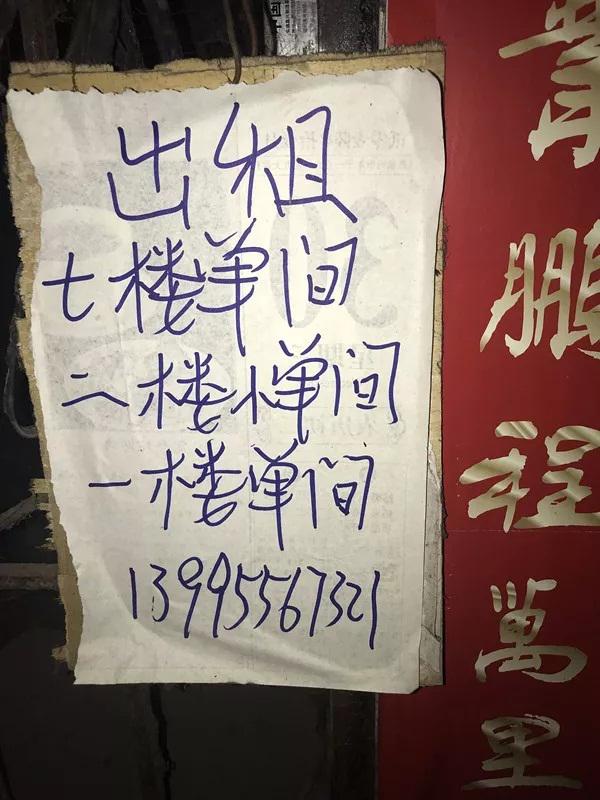 出租
七楼单间
二楼惮间
一楼单间
13995567321
鵬程萬里